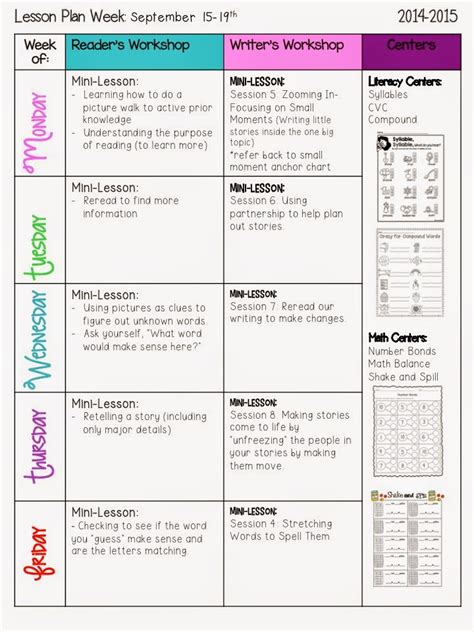 Lesson Plan Week: September 15-19th
2014-2015
Week
of:
Reader's Workshop
Writer's Workshop
Centers
Monday
Mini-Lesson:
- Learning how to do a
picture walk to active prior
knowledge
- Understanding the purpose
of reading (to learn more)
MINI-LESSON:
Session 5: Zooming In-
Focusing on Small
Moments (Writing little
stories inside the one big
topic)
*refer back to small
moment anchor chart
Literacy Centers:
Syllables
CVC
Compound
Tuesday
Mini-Lesson:
- Reread to find more
information
MINI-LESSON:
Session 6: Using
partnership to help plan
out stories.
Crazy for Compound Words
Wednesday
Mini-Lesson:
- Using pictures as clues to
figure out unknown words.
- Ask yourself, "What word
would make sense here?"
MINI-LESSON:
Session 7: Reread our
writing to make changes.
Math Centers:
Number Bonds
Math Balance
Shake and Spill
Thursday
Mini-Lesson:
- Retelling a story (including
only major details)
MINI-LESSON:
Session 8: Making stories
come to life by
"unfreezing" the people in
your stories by making
them move.
Friday
Mini-Lesson:
- Checking to see if the word
you "guess" make sense and
are the letters matching.
MINI-LESSON:
Session 4: Stretching
Words to Spell Them
Shake and